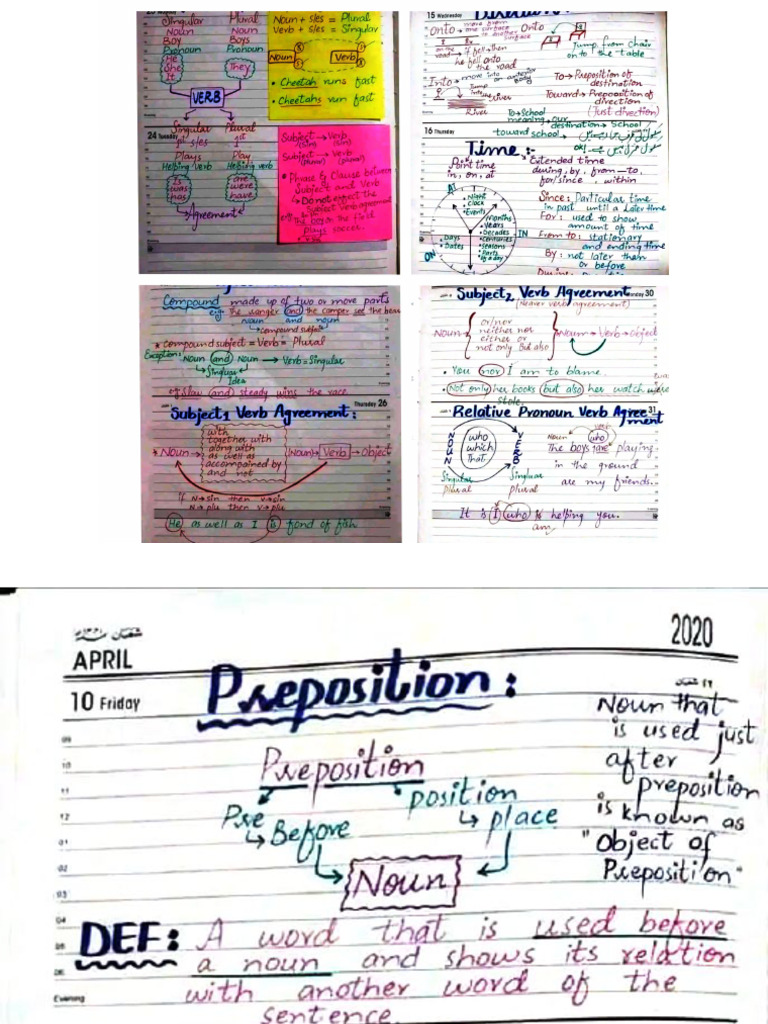 Singular Plural
Noun Noun
Boy Boys
Pronoun Pronoun
He
She
It
They
VERB
Singular Plural
Plays Play
Helping verb Helping verb
Is
was
has
are
were
have
Agreement
24 Tuesday
Noun + s/es = Plural
Verb + s/es = Singular
Noun Verb
• Cheetah runs fast
• Cheetahs run fast
Subject → Verb
(sin) (sin)
Subject → Verb
(plural) (plural)
• Phrase & Clause between
Subject and Verb
↳ Do not effect the
Subject Verb agreement
The boy on the field
plays soccer.
15 Wednesday
Onto
Onto
Jump from chair
onto the table
he fell onto
the road
Into → move into
Jump
into
River
River
To → Preposition of
destination
Toward → Preposition of
direction
(Just direction)
To → School
destination → School
toward school
16 Thursday
Time:
Point time
in, on, at
Extended time
during, by, from—to,
for/since, within
AT
• Night
• clock
• Events
Months
• Years
• Decades
• centuries
• seasons
• Parts
of a day
IN
• Days
• Dates
ON
Since: Particular time
in past until a later time
For: used to show
amount of time
From to: stationary
and ending time
By: not later than
or before
Compound made up of two or more parts
eg: The singer and the camper set the
noun and noun
↳ compound subject
* compound subject = Verb = Plural
Exception: Noun and Noun → Verb = Singular
Singular
Idea
Slow and steady wins the race.
Thursday 26
Subject, Verb Agreement:
with
together with
along with
as well as
accompanied by
and not
* Noun → Noun → Verb → Object
If N → sin then V → sin
N → plu then V → plu
He as well as I is fond of fish
Subject, Verb Agreement 30
(Nearer verb agreement)
Noun → { or/nor
neither nor
either or
not only But also } Noun → Verb → Object
• You nor I am to blame.
• Not only her books but also her watch were
was
stole.
Relative Pronoun Verb Agreement 31
NOUN
who
which
that
VERB
Noun who verb
The boys are playing
in the ground
are my friends.
Singular Singular
plural plural
It is I who is helping you.
am
APRIL
2020
10 Friday
Preposition:
Preposition
Pre position
↳ Before ↳ place
Noun
Noun that
is used just
after
preposition
is known as
"Object of
Preposition"
DEF: A word that is used before
a noun and shows its relation
with another word of the
sentence.
Evening